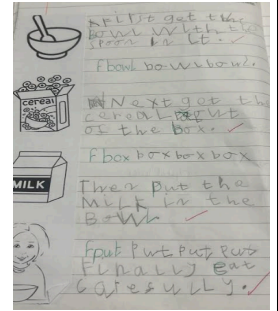 AFirst get the
bowl with the
spoon in it.
f bowl bowl bowl.
Next get the
cereal out
of the box.
cereal
f box box box box
Then put the
MILK in the
BOWL
MILK
f put Put Put Put
Finally eat
carefully.